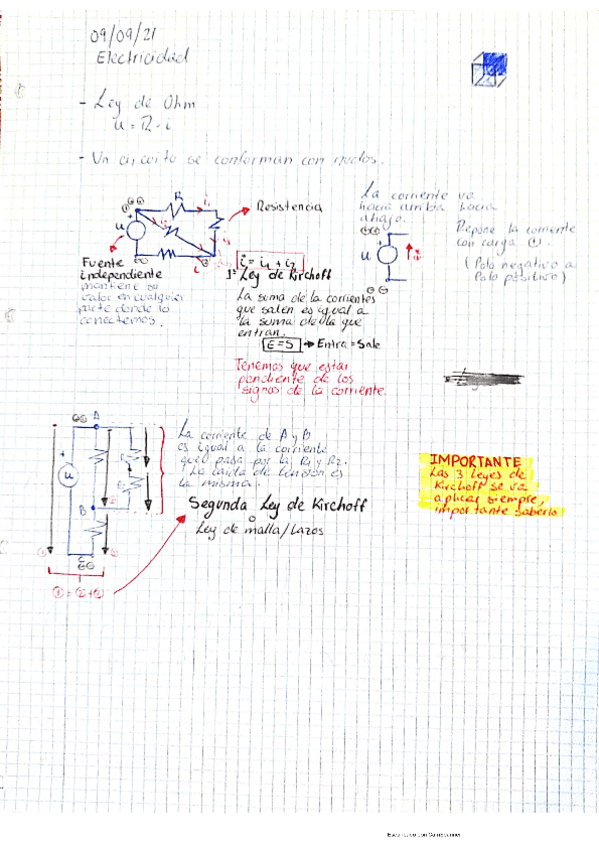 09/09/21
Electricidad
- Ley de Ohm
u = R · i
- Un circuito se conforman con nodos.
R
Resistencia
u
i = i1 + i2
Fuente
independiente
mantiene su
valor en cualquier
parte donde lo
conectemos.
1ª Ley de Kirchoff
La soma de la corrientes
que salen es igual a
la suma de la que
entran.
E = S → Entra = Sale
Tenemos que estar
pendiente de los
signos de la corriente.
La corriente va
hacia arriba hacia
abajo.
u
Repone la corriente
con carga
(Polo negativo a
Polo positivo)
A
u
B
La corriente de A y B
es igual a la corriente
que pasa por la R1 y R2.
La caida de tension es
la misma.
Segunda Ley de Kirchoff
o
Ley de malla/Lazos
IMPORTANTE
Las 3 leyes de
Kirchoff se va
aplicar siempre,
importante saberlo
Escaneado con CamScanner